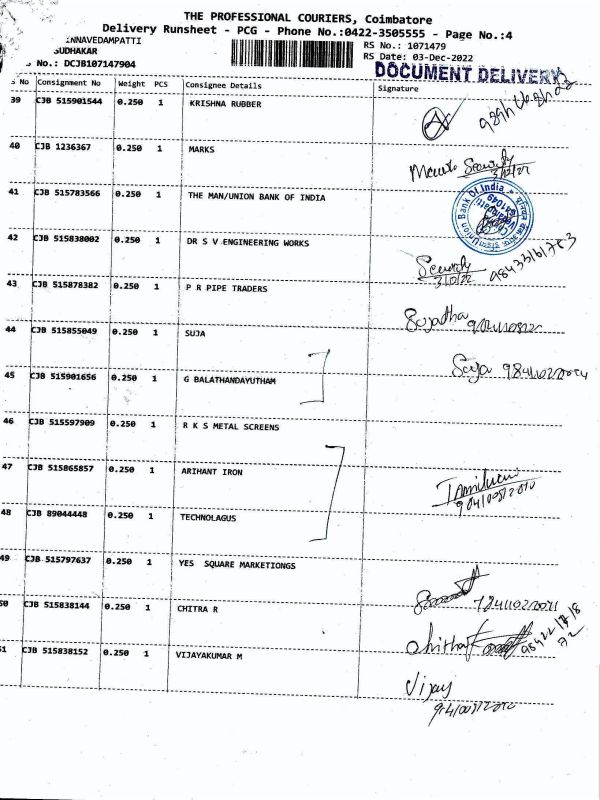 THE PROFESSIONAL COURIERS, Coimbatore
Delivery Runsheet - PCG - Phone No.:0422-3505555 - Page No.:4
INNAVEDAMPATTI
SUDHAKAR
No.: DCJB107147904
RS No.: 1071479
RS Date: 03-Dec-2022
DOCUMENT DELIVERY
No Consignment No Weight PCS Consignee Details Signature
39 CJB 515901544 0.250 1 KRISHNA RUBBER
40 CJB 1236367 0.250 1 MARKS
Security
3/12/22
41 CJB 515783566 0.250 1 THE MAN/UNION BANK OF INDIA
Union Bank Of India
641049
42 CJB 515838002 0.250 1 DR S V ENGINEERING WORKS
Security
43 CJB 515878382 0.250 1 P R PIPE TRADERS
Sujatha
44 CJB 515855049 0.250 1 SUJA
Suja
45 CJB 515901656 0.250 1 G BALATHANDAYUTHAM
46 CJB 515597909 0.250 1 R K S METAL SCREENS
47 CJB 515865857 0.250 1 ARIHANT IRON
48 CJB 89044448 0.250 1 TECHNOLAGUS
49 CJB 515797637 0.250 1 YES SQUARE MARKETIONGS
50 CJB 515838144 0.250 1 CHITRA R
51 CJB 515838152 0.250 1 VIJAYAKUMAR M
Vijay